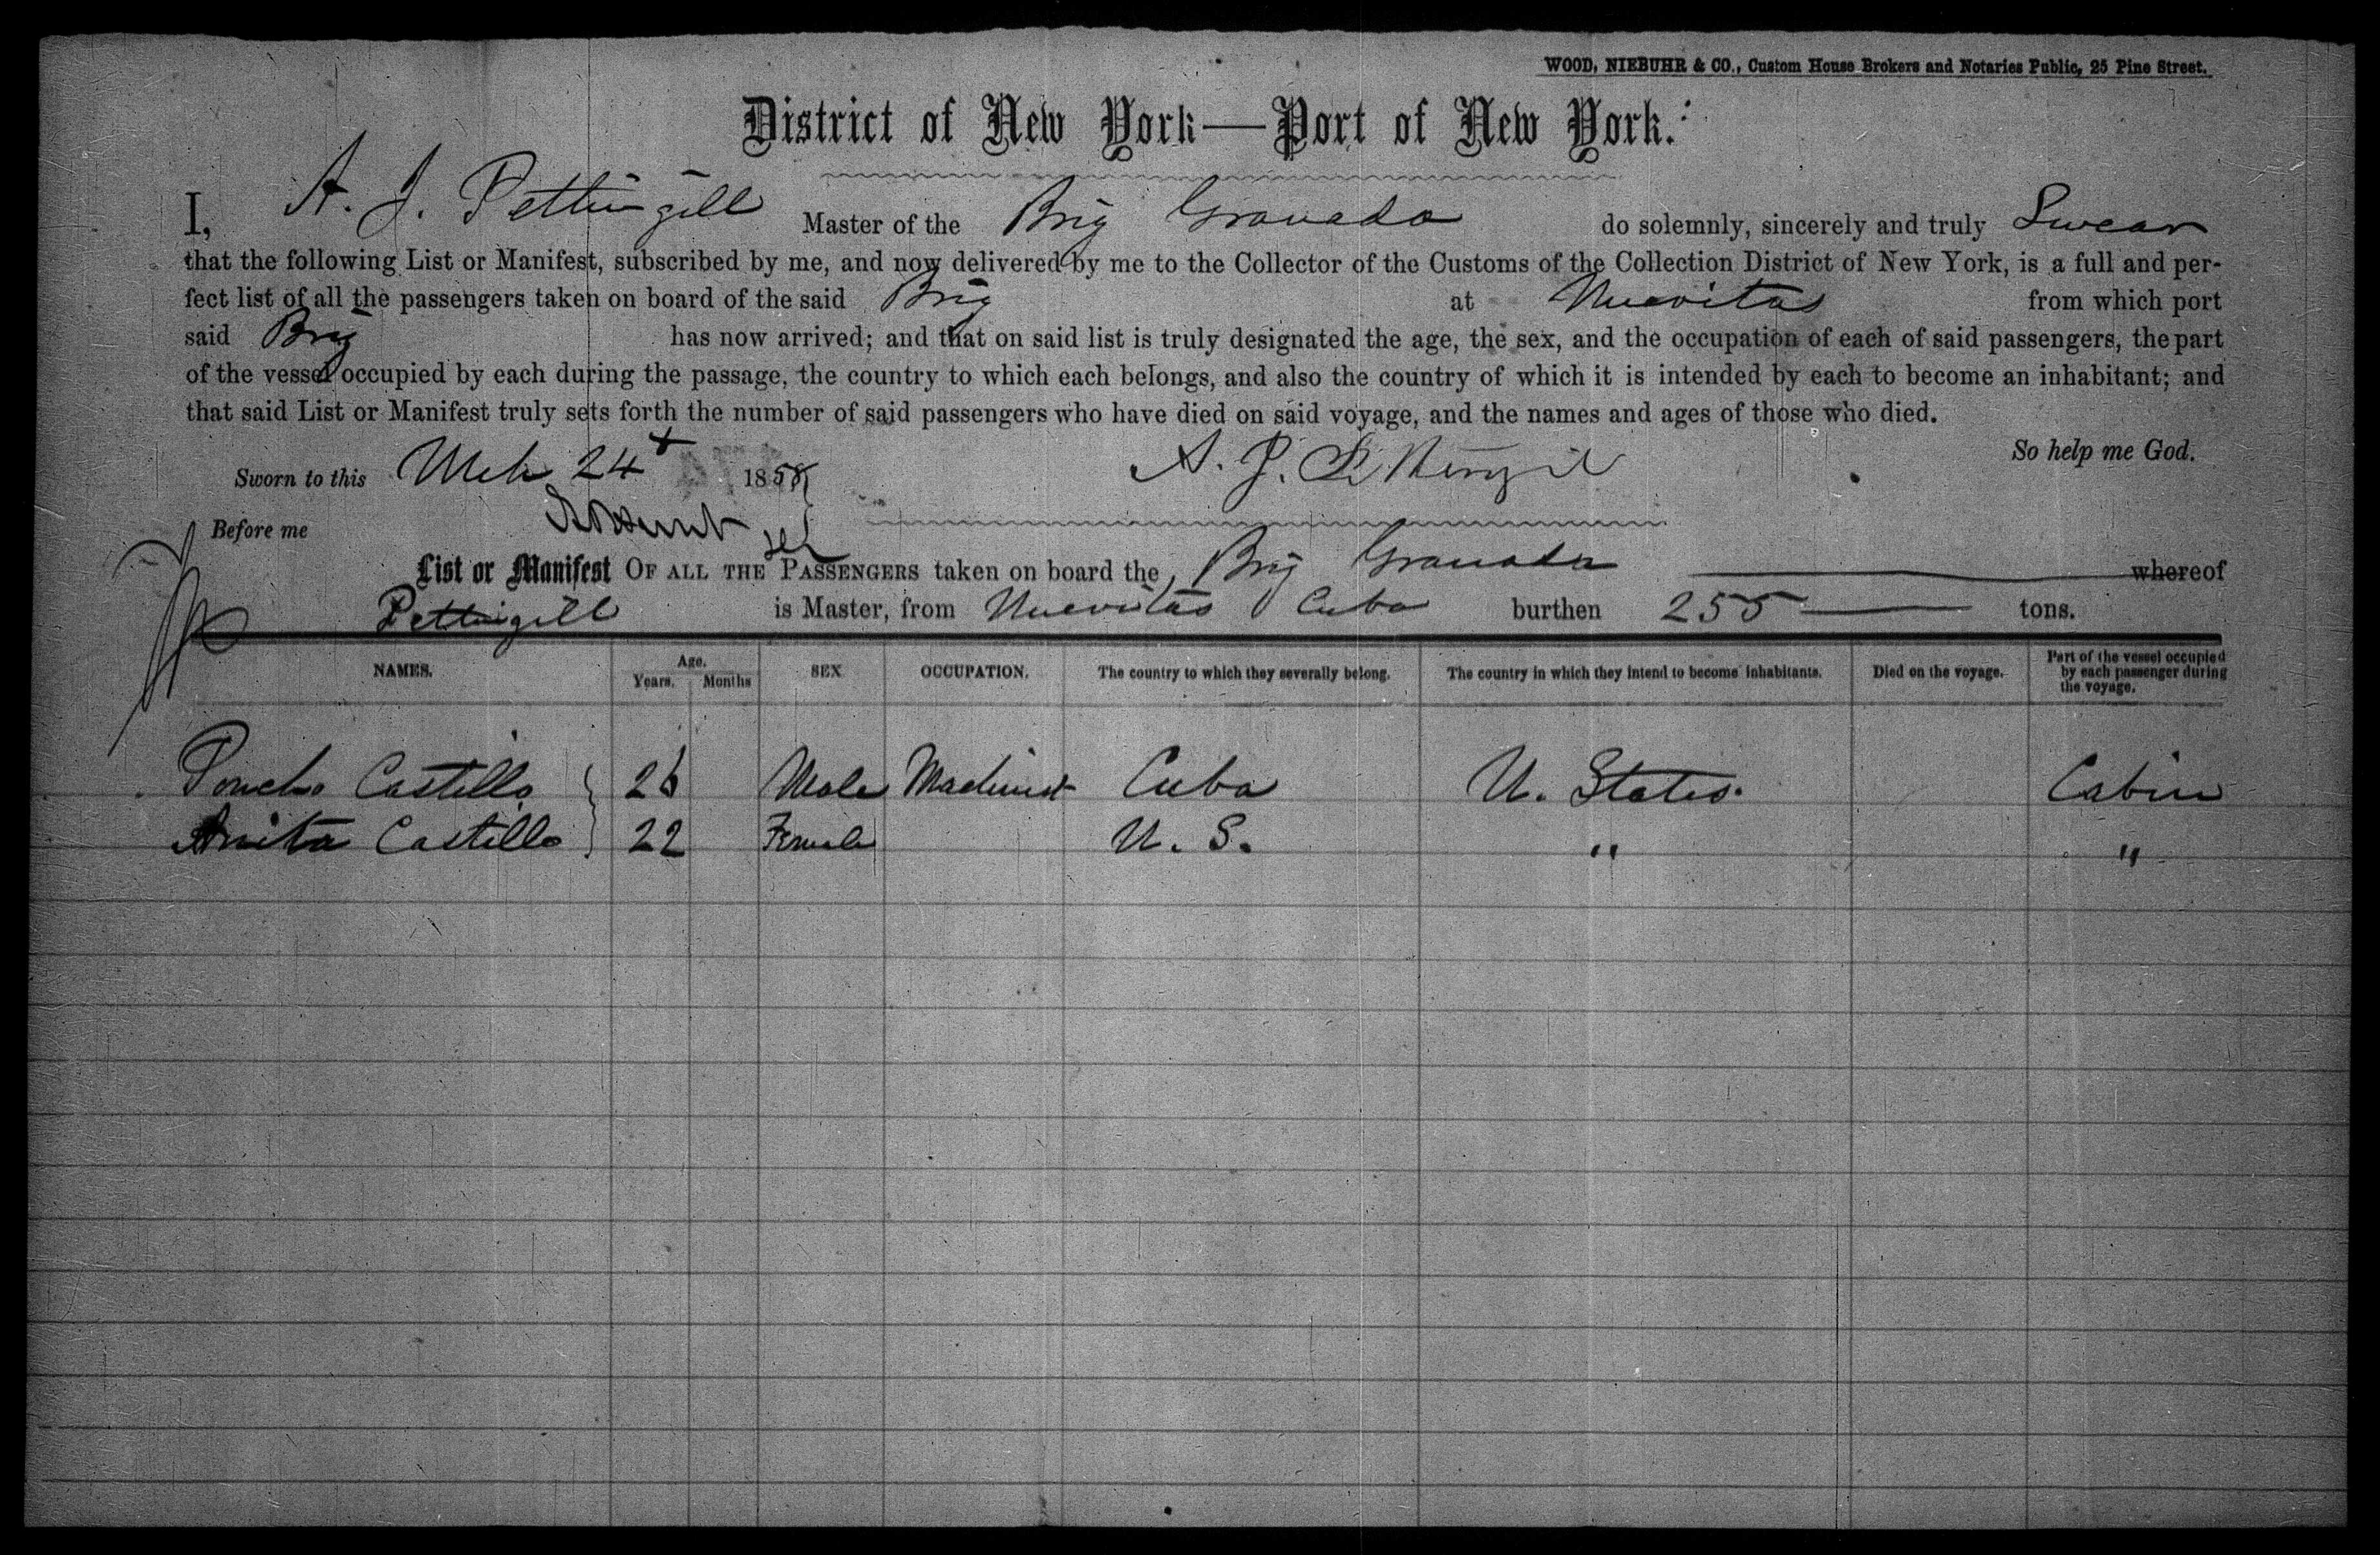 WOOD, NIEBUHR & CO., Custom House Brokers and Notaries Public, 25 Pine Street.
District of New York—Port of New York.
I, A. J. Pettingill Master of the Brig Granada do solemnly, sincerely and truly Swear
that the following List or Manifest, subscribed by me, and now delivered by me to the Collector of the Customs of the Collection District of New York, is a full and per-
fect list of all the passengers taken on board of the said Brig at Nuevitas from which port
said Brig has now arrived; and that on said list is truly designated the age, the sex, and the occupation of each of said passengers, the part
of the vessel occupied by each during the passage, the country to which each belongs, and also the country of which it is intended by each to become an inhabitant; and
that said List or Manifest truly sets forth the number of said passengers who have died on said voyage, and the names and ages of those who died.
So help me God.
Sworn to this Mch 24 1858
Before me
List or Manifest OF ALL THE PASSENGERS taken on board the Brig Granada whereof
Pettingill is Master, from Nuevitas Cuba burthen 255 tons.
NAMES. Age. Years. Months SEX OCCUPATION. The country to which they severally belong. The country in which they intend to become inhabitants. Died on the voyage. Part of the vessel occupied by each passenger during the voyage.
Poncho Castillo 26 Male Machinist Cuba U. States. Cabin
Anita Castillo 22 Female U. S. " "